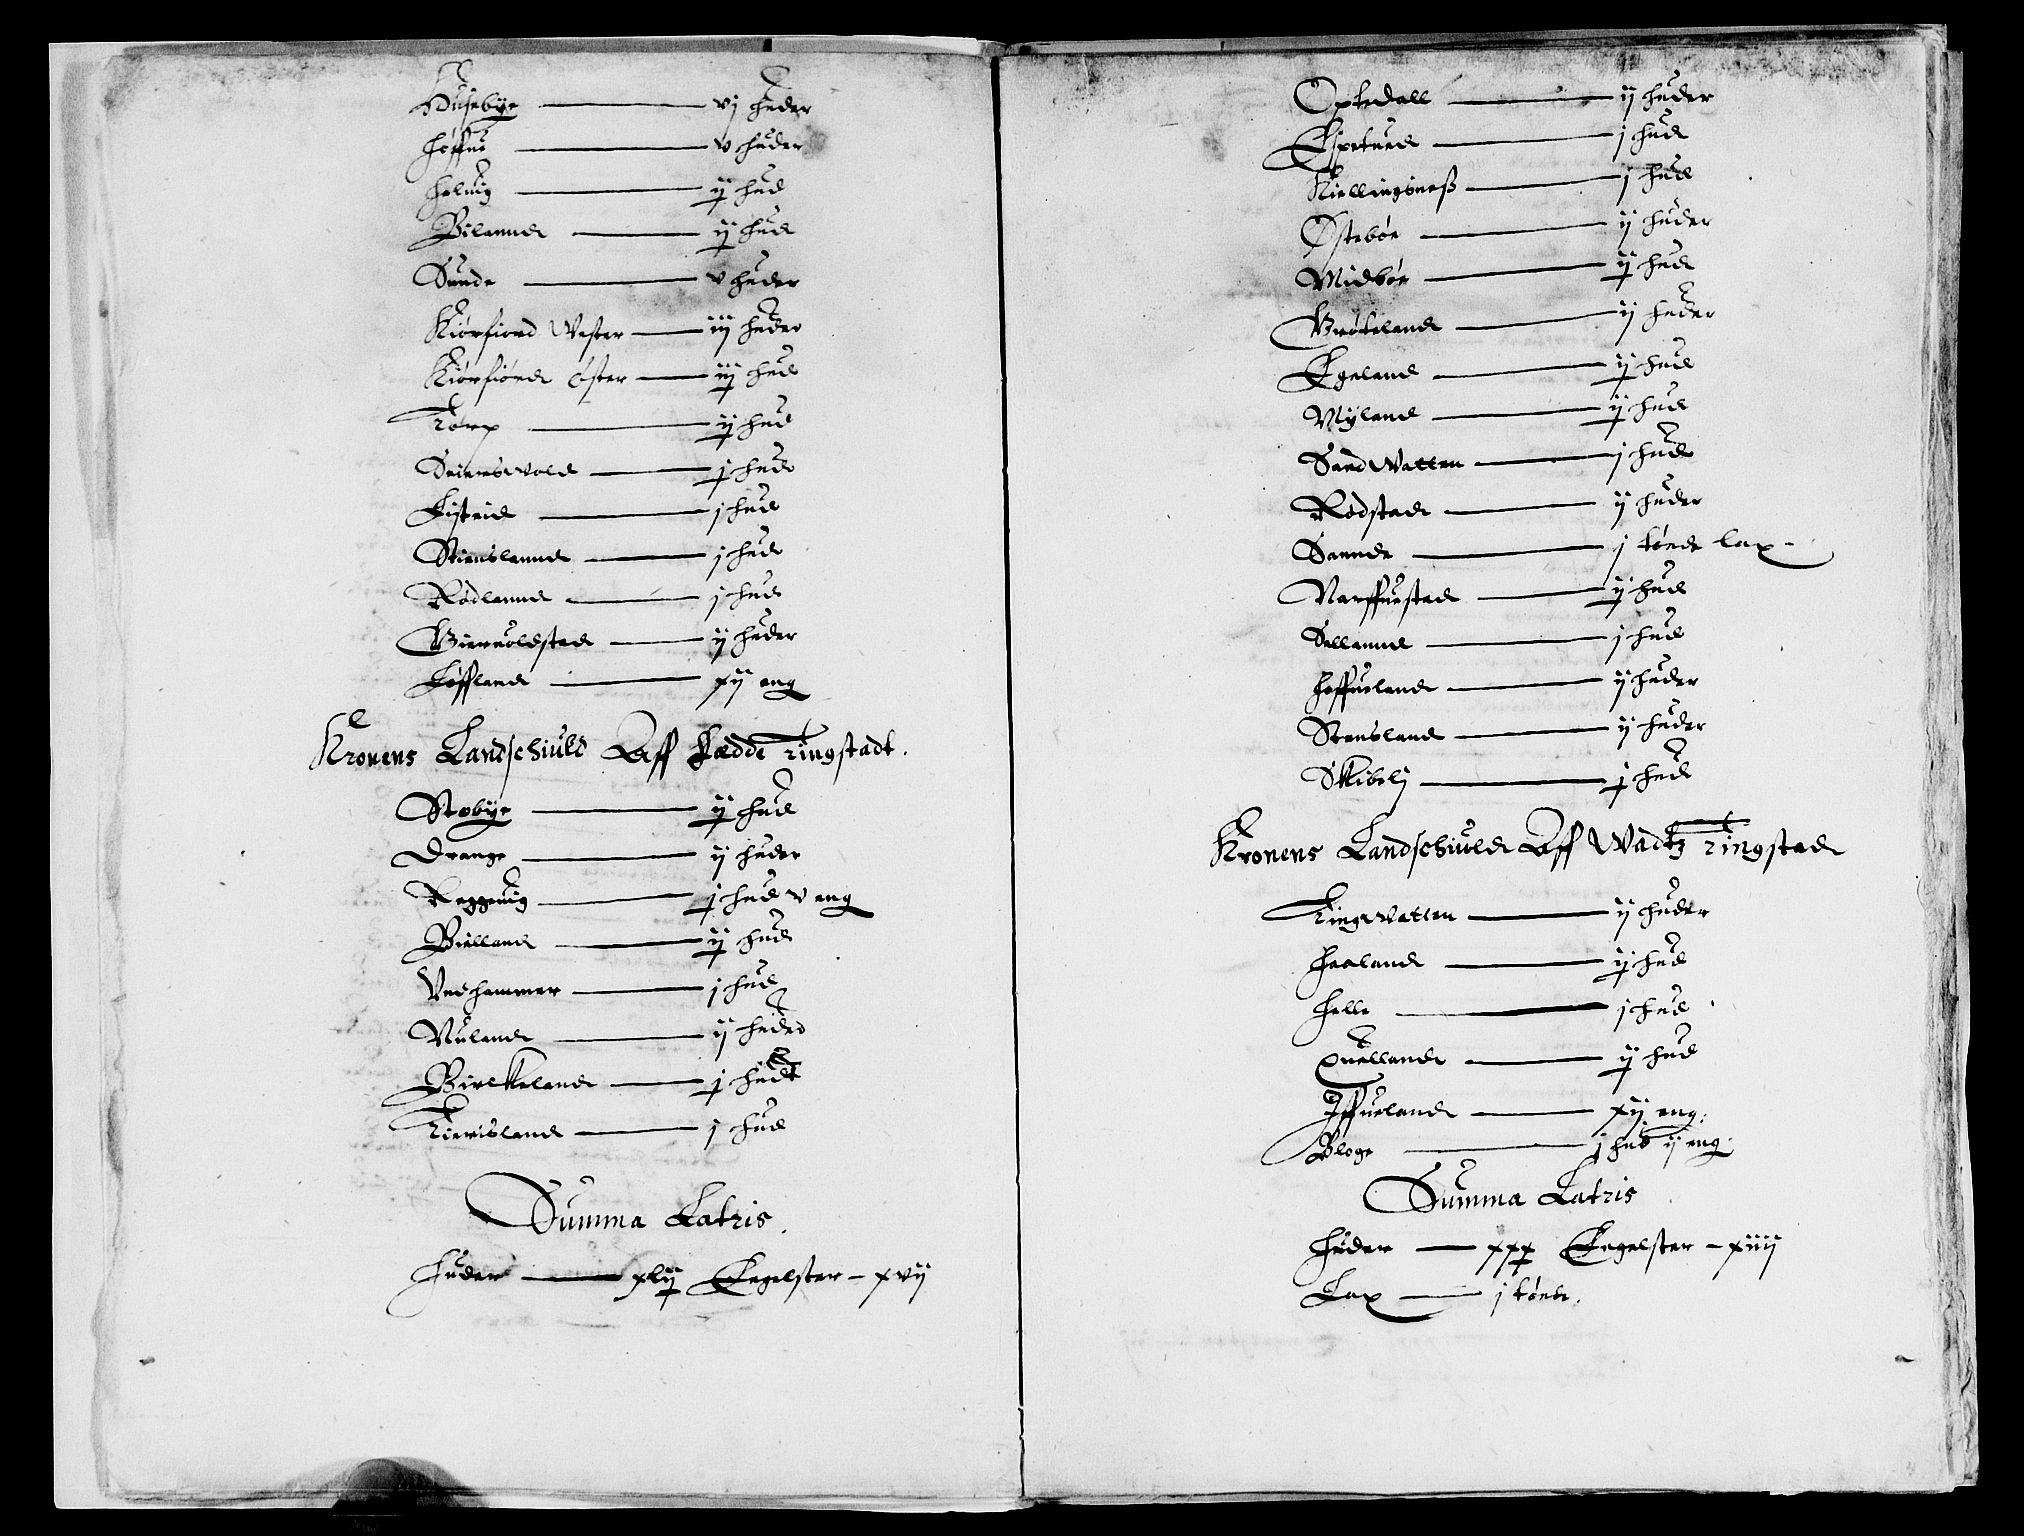 Husebÿe — vj huder
høffue — v huder
heluig — ij hud
Bilannd — ij hud
Sunde — v huder
Kiørfiord Wester — iij huder
Kiørfiord øster — iij hud
Torp — ij hud
Seierswold — j hud
Eÿstrid — j hud
Stienslannd — j hud
Rødlannd — j hud
Gieruoldstad — ij huder
Løffland — xij eng
Kronens Landschiuld Aff Fædde Tingstadt.
Stobÿe — ij hud
Drange — ij huder
Reggeuig — j hud v eng
Bielland — ij hud
Vedhammer — j hud
Nuland — ij huder
Birckeland — j hudt
Tierisland — j hud
Summa Latris.
Huder — xlij Engelster — xvij
Optedall — ij huder
Espetued — j hud
Kiellingsneß — j hud
Østebøe — ij huder
Midbøe — ij hud
Brøteland — ij huder
Egeland — ij hud
Mÿland — ij hud
Sandwatten — j hud
Rødstad — ij huder
Sannde — j tønde lax
Narffuestad — ij hud
Sellannd — j hud
Heffueland — ij huder
Stensland — ij huder
Skibelj — j hud
Kronens Landschiuld Aff Wadtz Tingstad
Tingwatten — ij huder
Haaland — ij hud
Helle — j hud
Quelland — ij hud
Iffueland — xij eng.
Bloge — j hud ij eng.
Summa Latris
Huder — xxx Engelster — xiiij
Lax — j tønde.